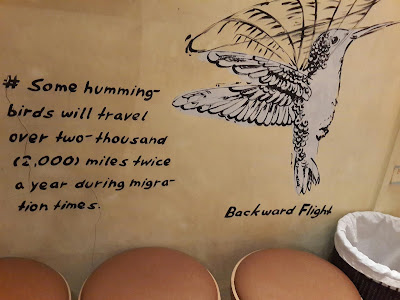 # Some humming-
birds will travel
over two-thousand
(2,000) miles twice
a year during migra-
tion times.
Backward Flight